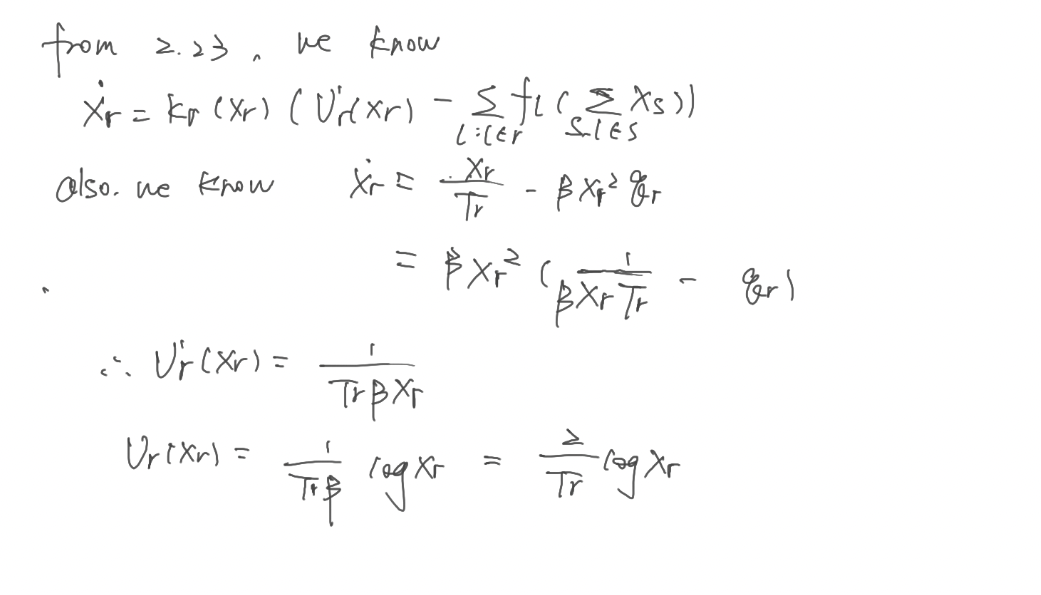 from 2.23, we know
ẋr = kr (xr) ( U'r(xr) - Σ_{l:l∈r} fl ( Σ_{s:l∈s} Xs))
also. we know ẋr = xr/Tr - β Xr² qr
= β Xr² ( 1/(βXr Tr) - qr)
∴ U'r (Xr) = 1/(Tr β Xr)
Ur(Xr) = 1/(Tr β) log Xr = 2/Tr log Xr